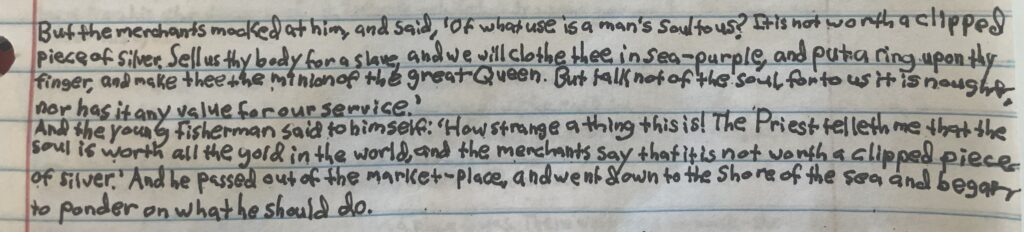 But the merchants mocked at him, and said, 'Of what use is a man's soul to us? It is not worth a clipped
piece of silver. Sell us thy body for a slave, and we will clothe thee in sea-purple, and put a ring upon thy
finger, and make thee the minion of the great Queen. But talk not of the soul, for to us it is nought,
nor has it any value for our service.'
And the young fisherman said to himself: 'How strange a thing this is! The Priest telleth me that the
soul is worth all the gold in the world, and the merchants say that it is not worth a clipped piece
of silver.' And he passed out of the market-place, and went down to the shore of the sea and began
to ponder on what he should do.